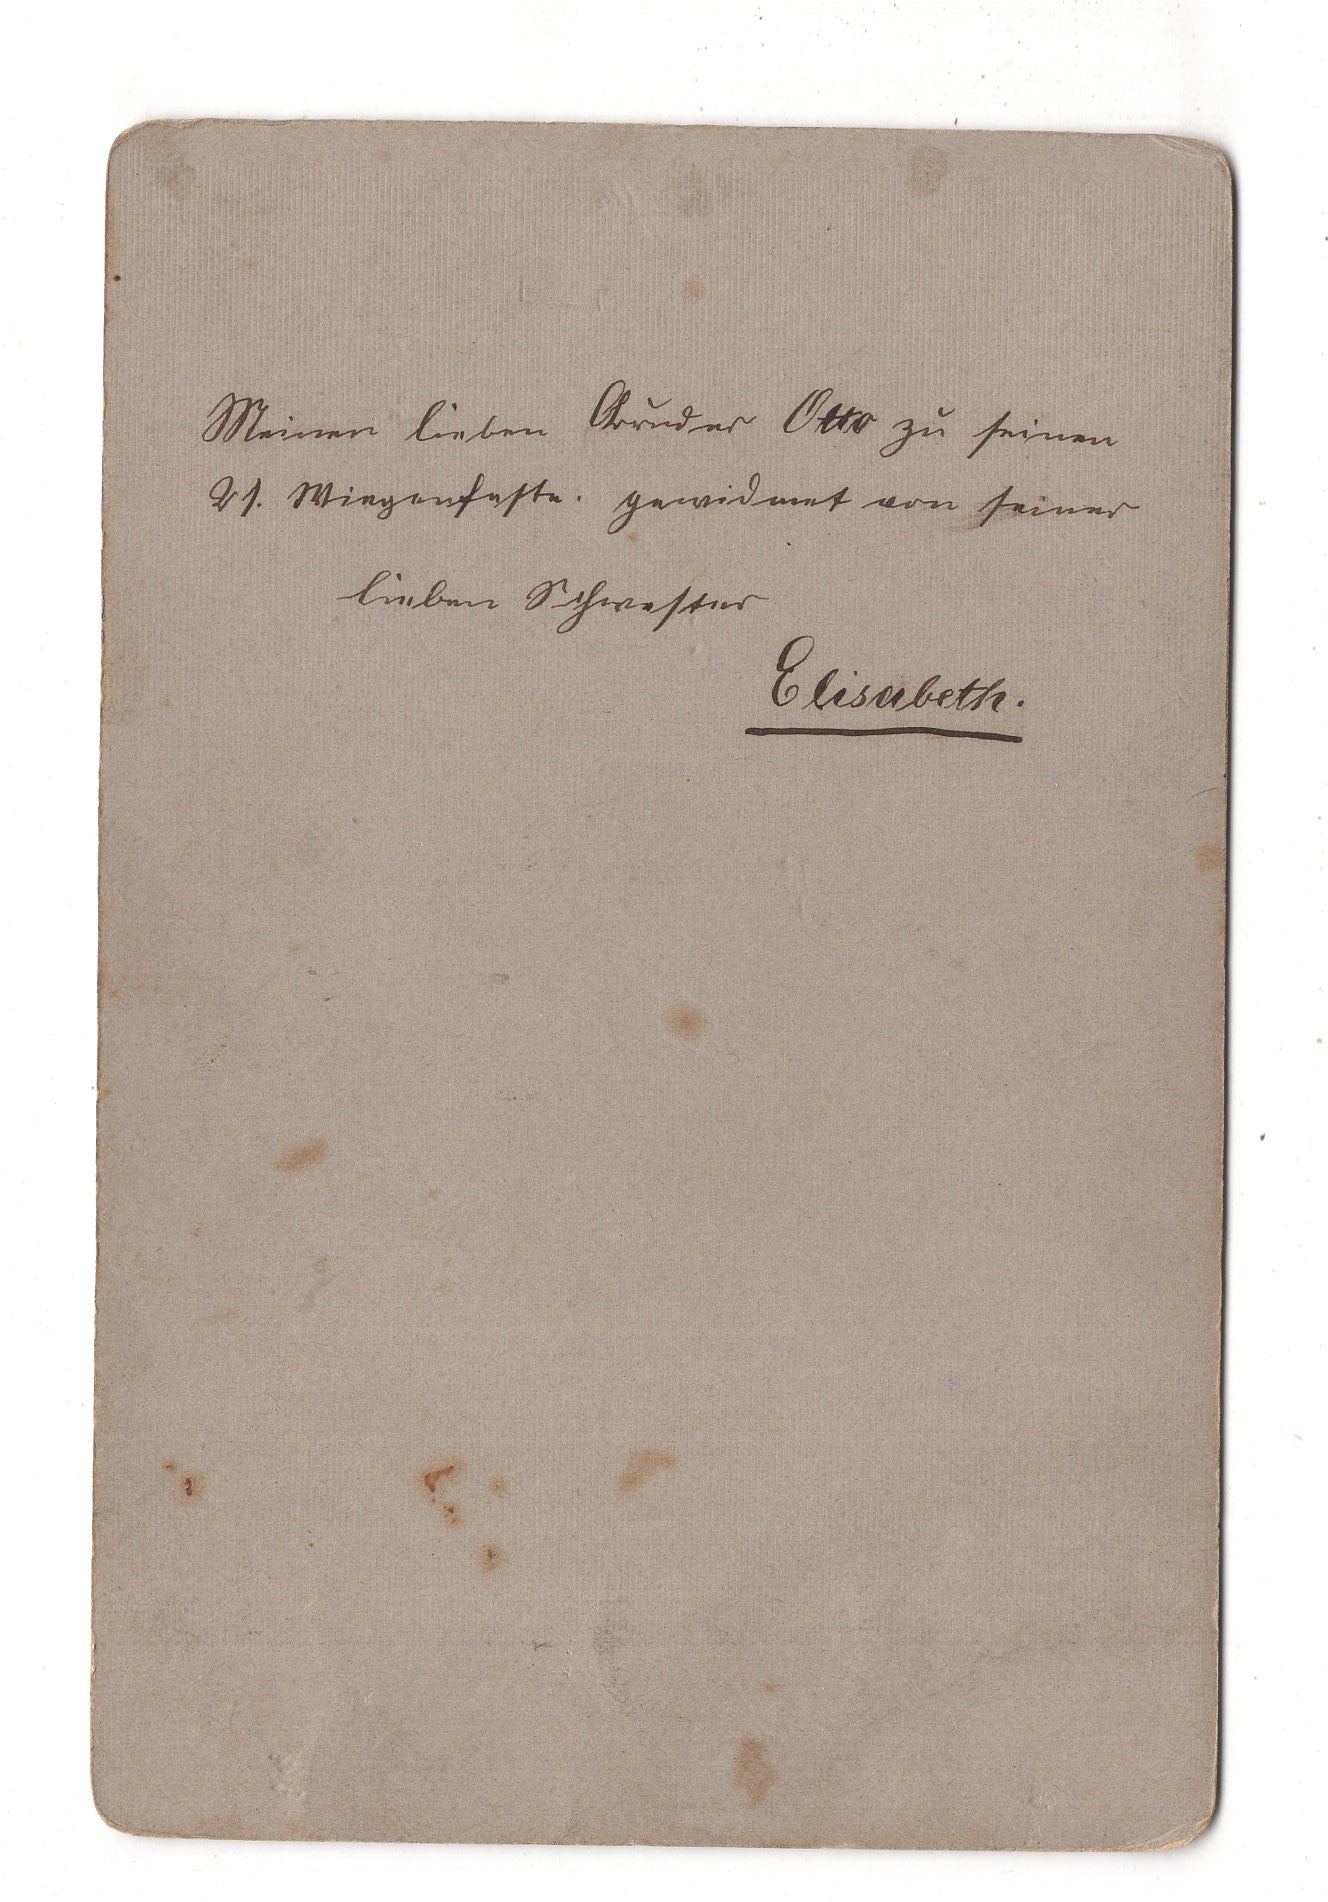 Meinen lieben Bruder Otto zu seinen
21. Wiegenfeste. gewidmet von seiner
lieben Schwester
Elisabeth.